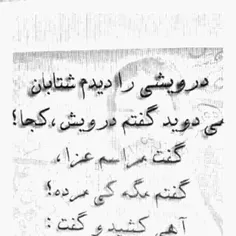 درویشی را دیدم شتابان
می دوید گفتم درویش، کجا؟
گفت مراسم عزا،
گفتم مگه کی مرده؟
آهی کشید و گفت :